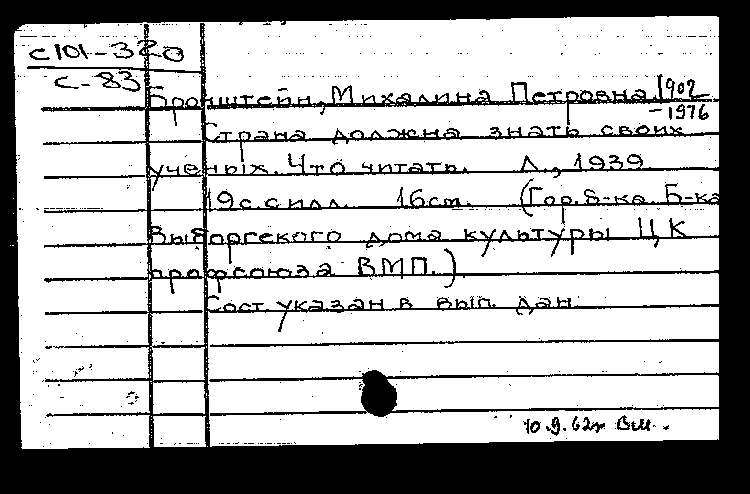 С101-320
С-83
Бронштейн, Михалина Петровна. 1902
-1976
Страна должна знать своих
ученых. Что читать. Л., 1939
19с. с илл. 16см. (Гор. б-ка. Б-ка
Выборгского дома культуры ЦК
профсоюза ВМП.)
Сост. указан в вып. дан.
10.9.62г